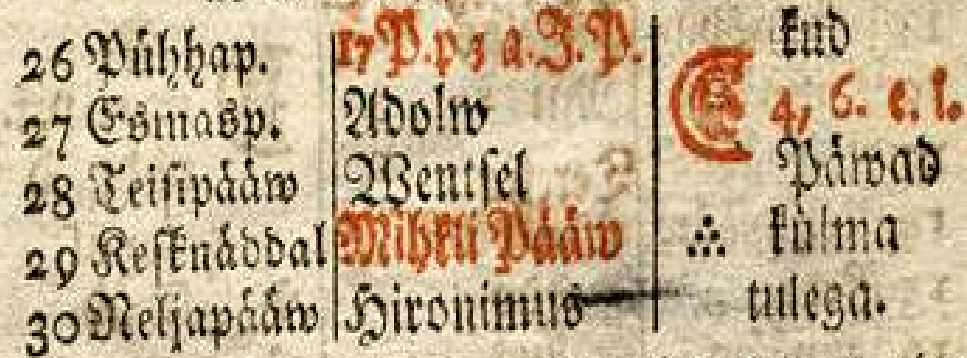 26 Pühhap. 17 P. p 3 a. J. P. kud
27 Esmasp. Adolw 4, 6. e. l.
28 Teisipääw Wentsel Päwad
29 Kesknäddal Mihkli Pääw külma
30 Neljapääw Hironimus tulega.